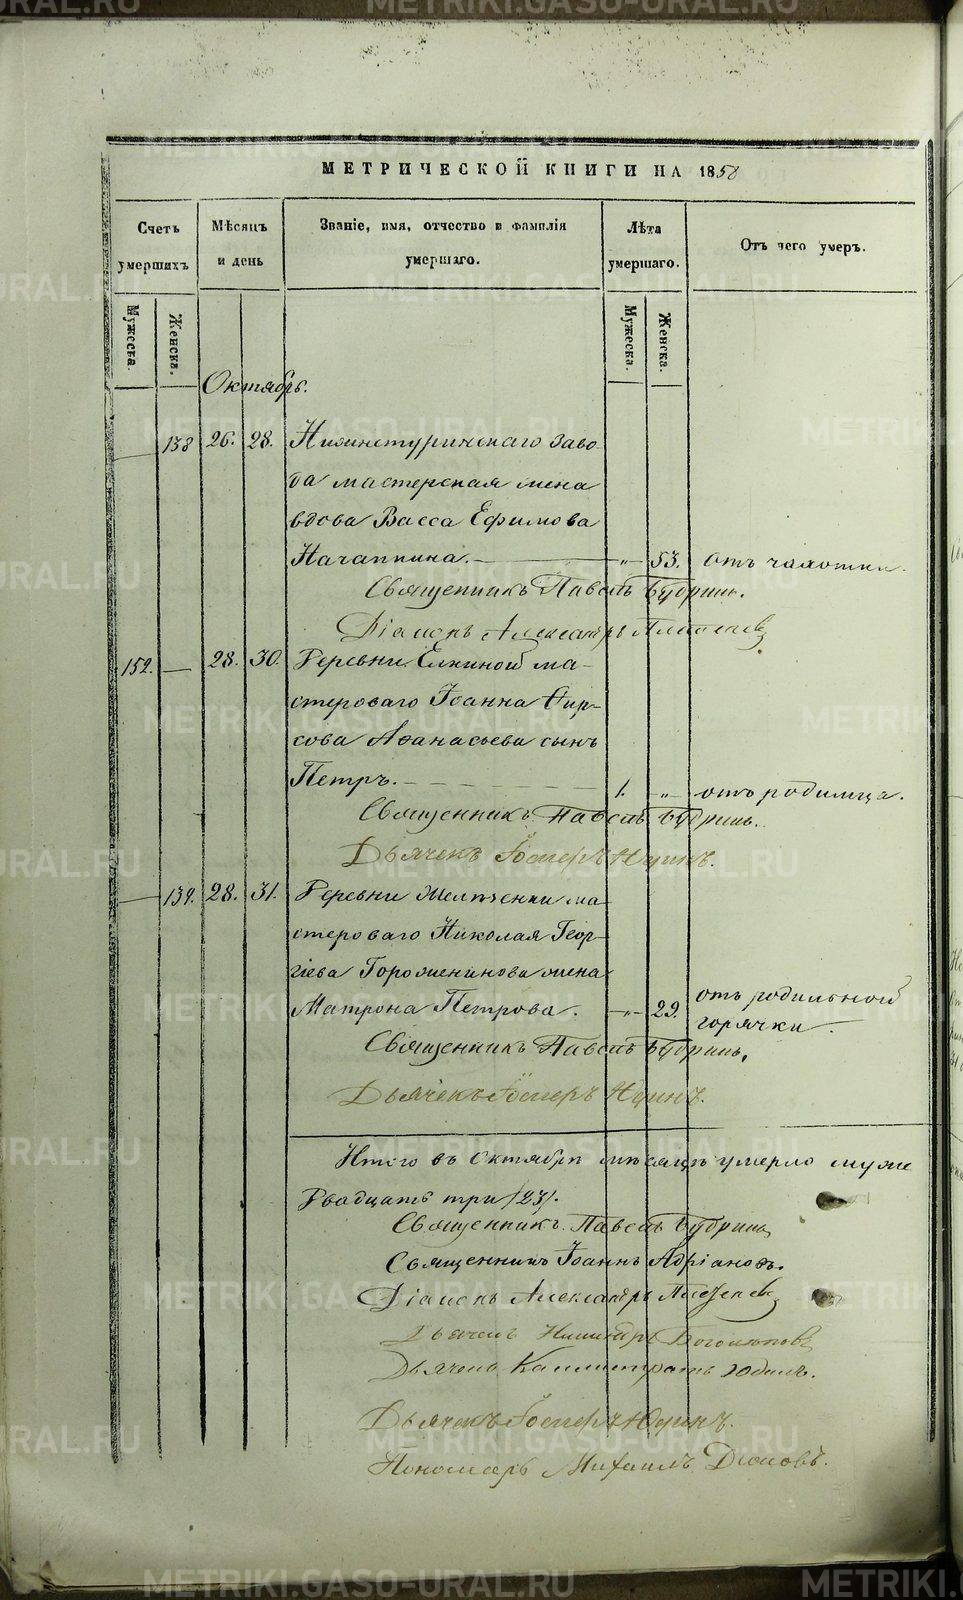 МЕТРИЧЕСКОЙ КНИГИ НА 1858
Счетъ умершихъ
Мѣсяцъ и день
Званіе, имя, отчество и фамилія умершаго.
Лѣта умершаго.
Отъ чего умеръ.
Мужеска.
Женска.
Мужеска.
Женска.
Октябрь.
138 26. 28. Нижнетуринскаго заво
да мастерская жена
вдова Васса Ефимова
53. отъ чахотки.
Священникъ Павелъ Бубринъ.
Діаконъ Александръ
152. — 28. 30. Деревни Елкиной ма-
стероваго Іоанна Фир-
сова Аѳанасьева сынъ
Петръ. 1. „ отъ родимца.
Священникъ Павелъ Бубринъ.
Дьячекъ Іосифъ Юдинъ.
— 139. 28. 31. Деревни ма
стероваго Николая Геор-
гіева жена
Матрона Петрова. — „ — 29. отъ родильной
горячки —
Священникъ Павелъ Бубринъ.
Дьячекъ Іосифъ Юдинъ.
Итого въ Октябрѣ мѣсяцѣ умерло муже
Двадцать три /23/.
Священникъ Павелъ Бубринъ
Священникъ Іоаннъ Адріановъ.
Діаконъ Александръ
Дьячекъ
Дьячекъ Каллистратъ
Дьячекъ Іосифъ Юдинъ.
Пономарь Михаилъ
METRIKI.GASO-URAL.RU